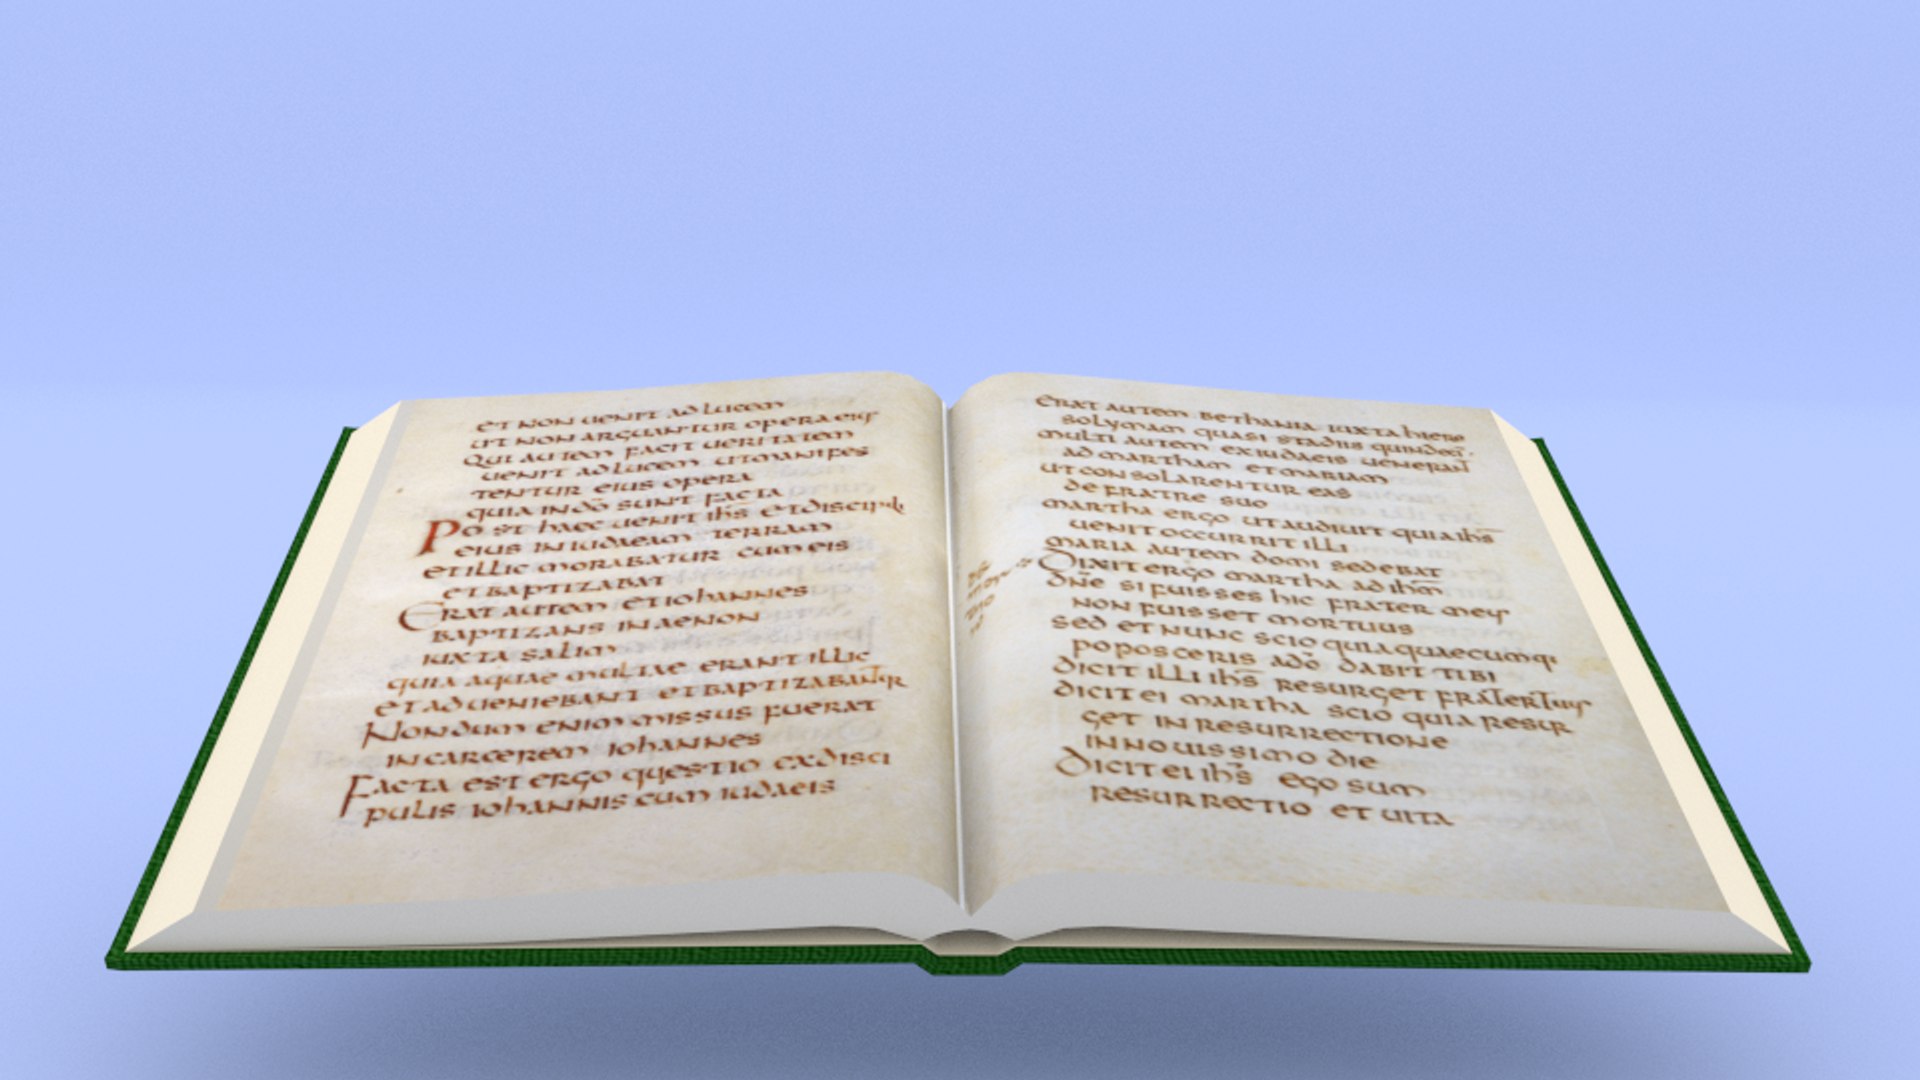 et non uenit ad lucem
ut non arguantur opera eius
Qui autem facit ueritatem
uenit ad lucem ut manifes
tentur eius opera
quia in dō sunt facta
Post haec uenit ihs̄ et discipuli
eius in iudaeam terram
et illic morabatur cum eis
et baptizabat
Erat autem et iohannes
baptizans in aenon
iuxta salim
quia aquae multae erant illic
et adueniebant et baptizabant̄r
Nondum enim missus fuerat
in carcerem iohannes
Facta est ergo quęstio ex disci
pulis iohannis cum iudaeis
Erat autem bethania iuxta hiero
solymam quasi stadiis quindeci̅
multi autem ex iudaeis uenerant
ad martham et mariam
ut consolarentur eas
de fratre suo
martha ergo ut audiuit quia ihs̄
uenit occurrit illi
maria autem domi sedebat
Dixit ergo martha ad ihm̄
dn̄e si fuisses hic frater meus
non fuisset mortuus
sed et nunc scio quia quaecumq·
poposceris a dō dabit tibi
dicit illi ihs̄ resurget frater tuus
dicit ei martha scio quia resur
get in resurrectione
in nouissimo die
Dicit ei ihs̄ ego sum
resurrectio et uita